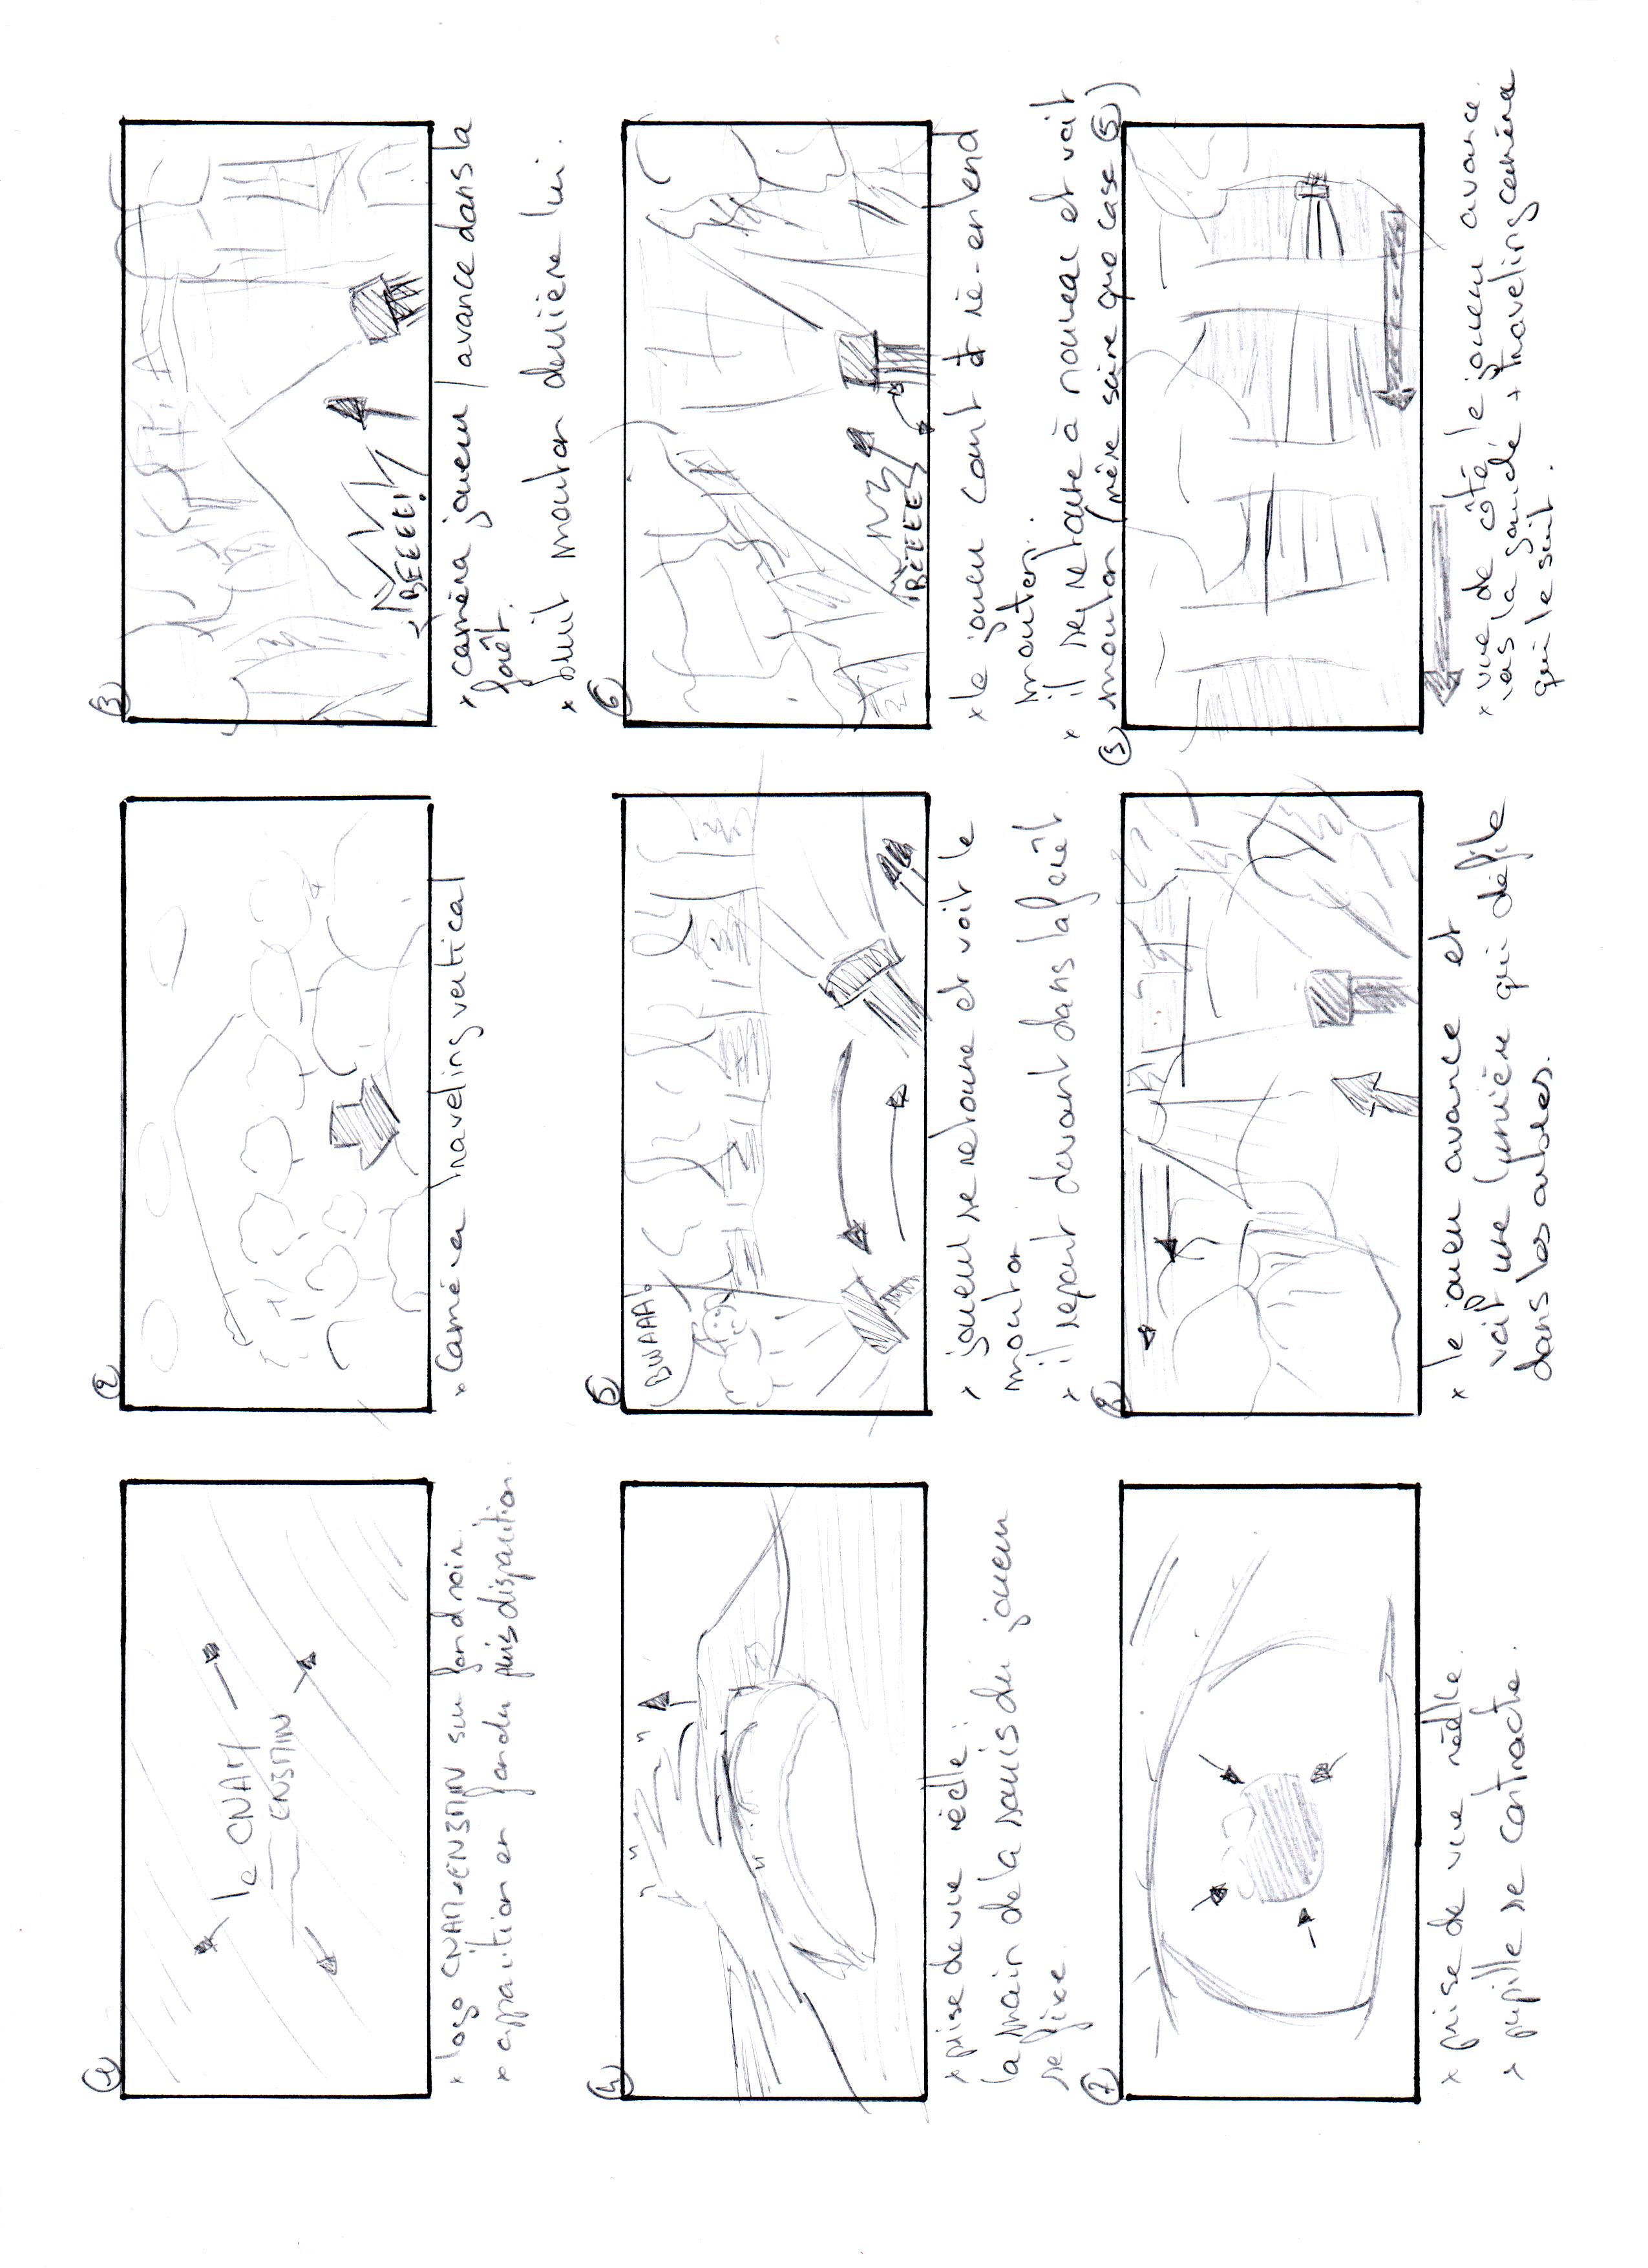 ①
le CNAM
ENJMIN
× logo CNAM-ENJMIN sur fond noir.
× apparition en fondu puis disparition.
②
× Caméra traveling vertical
③
BEEEE!
× caméra joueur / avance dans la
forêt.
× bruit mouton derrière lui.
④
× prise de vue réelle :
la main de la souris du joueur
se fixe.
⑤
BWAAA!
× joueur se retourne et voit le
mouton
× il repart devant dans la forêt
⑥
BEEEE
× le joueur court et ré-entend
mouton.
× il se retourne à nouveau et voit
mouton (même scène que case ⑤)
⑦
× prise de vue réelle.
× pupille se contracte.
⑧
× le joueur avance et
voit une lumière qui défile
dans les arbres.
⑨
× vue de côté, le joueur avance
vers la gauche + traveling caméra
qui le suit.